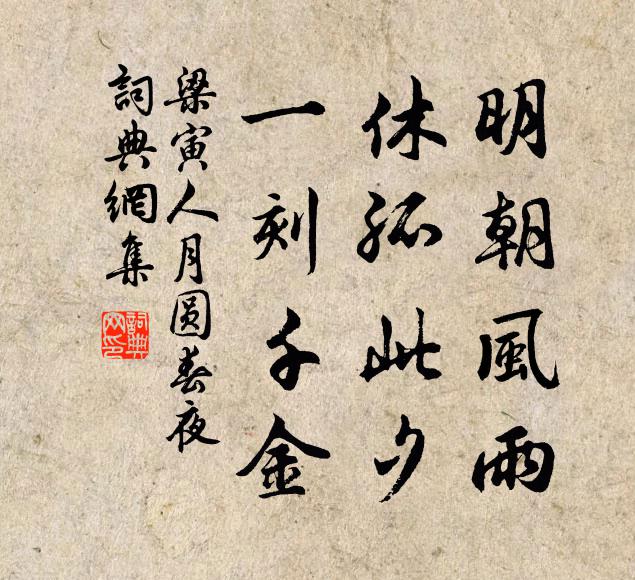 明朝風雨
休孤此夕
一刻千金
梁寅人月圆春夜
詞典網集
詞典
网印